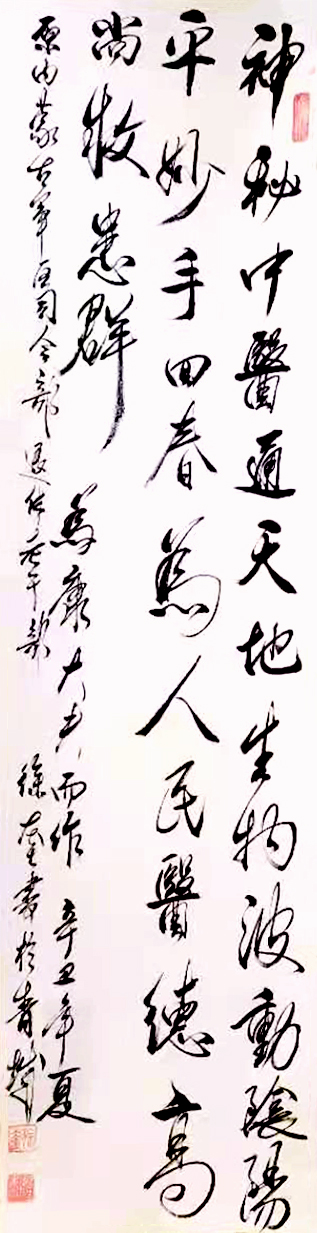 神秘中醫通天地生物波動陰陽
平妙手回春為人民醫德高
尚救患群 為康大夫而作 辛丑年夏
原内蒙古軍區司令部退休老干部 徐奎書於青城